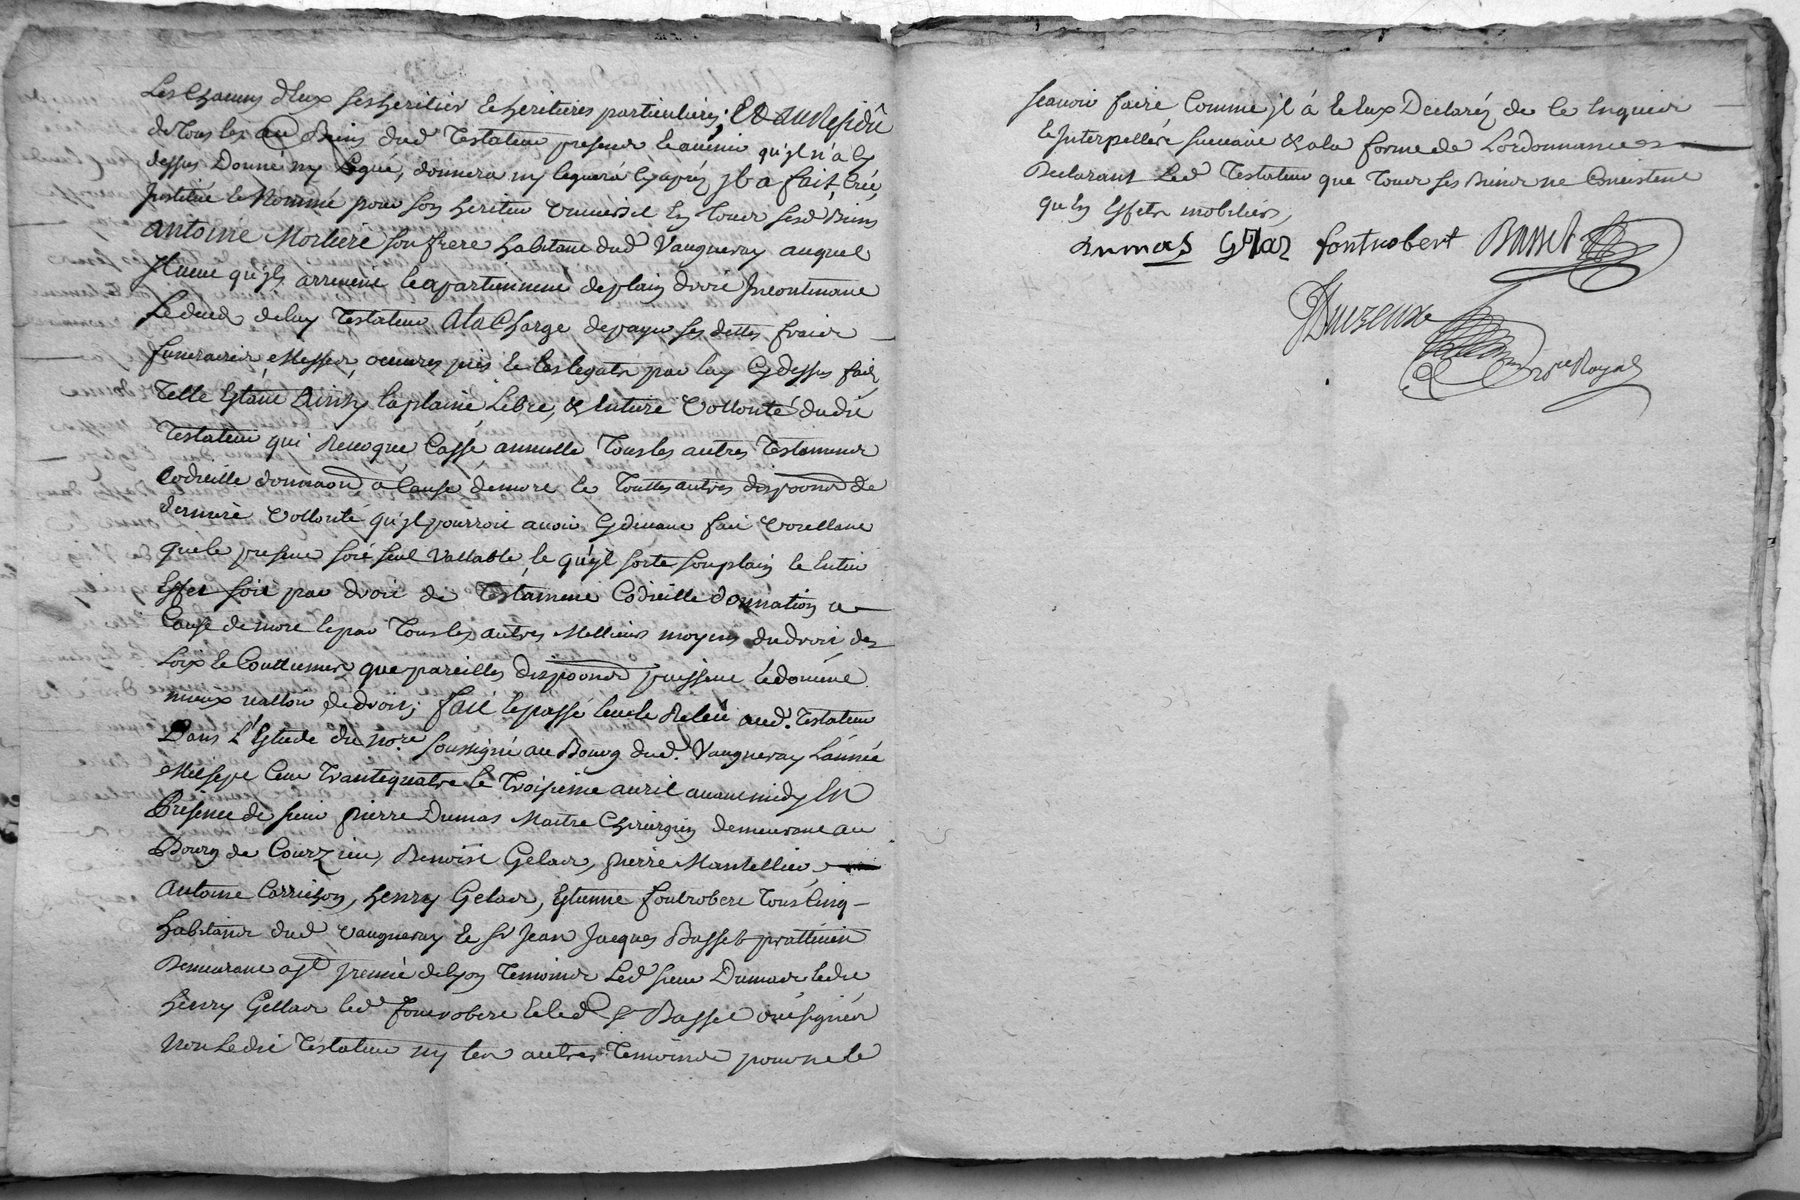 Les Chacuns d'Eux ses heritiers et heritieres particulieres; Et au Residu
de Tous les au Biens dud Testateur presens et avenir qu'jl n'a cy
dessus Donné ny Legué, donnera ny leguera cy aprés jl a fait, Créé,
Jnstitué et Nommé pour son heritier Universel En Tous sesd Biens
Antoine Morliere son frere habitant dud Vaugneray auquel
Jl veut qu'jls arrivent et apartiennent de plain droit Jncontinant
Le deceds de luy Testateur A la Charge de payer ses dettes fraier
funerairer, Messer, oeuvres pies et Les legats par luy Cy dessus fait
Telle Estant Ainsy La plaine Libre, & Entiere Vollonté dudit
Testateur qui Revoque Casse annulle Tous les autres Testamens
Codicille donnaon a Cause de mort et Touttes autres disposons de
derniere Vollonté qu'jl pourroit avoir Cy devant fait Voullant
que le present soit seul Vallable, et qu'jl sorte son plain et Entier
Effet soit par droit de Testament Codicille donnation a
Cause de mort et par Tous les autres Mellieurs moyens du droit des
Loix et Couttumes que pareilles disposons puissent et doivent
mieux valloir de droit; fait et passé leu et Releu aud. Testateur
Dans l'Etude du nore soussigné au Bourg dud. Vaugneray L'année
Mil sept Cent Trante quatre Le Troisieme avril avant midy En
Presence de sieur pierre Dumas Maitre Chirurgien demeurant au
Bourg de Courzieu, Benoist Gelas, pierre Mantellier,
Antoine Carrichon, henry Gelas, Etienne fontrobert Tous Cinq
habitans dud Vaugneray et Sr Jean Jacques Basset pratticien
Demeurant a St jrenée de Lyon Temoins Led sieur Dumas ledit
henry Gellas led fontrobert et led Sr Basset ont signés
Non Ledit Testateur ny les autres Temoins pour ne le
scavoir faire Comme jl a et Eux Declarés de ce Enquis
et Jnterpellés suivant & a la forme de Lordonnance
Declarant Led Testateur que Tous ses Biens ne Consistent
qu'En Effets mobiliers,
Dumas Gelas fontrobert Basset
Duzeux
nore Royal